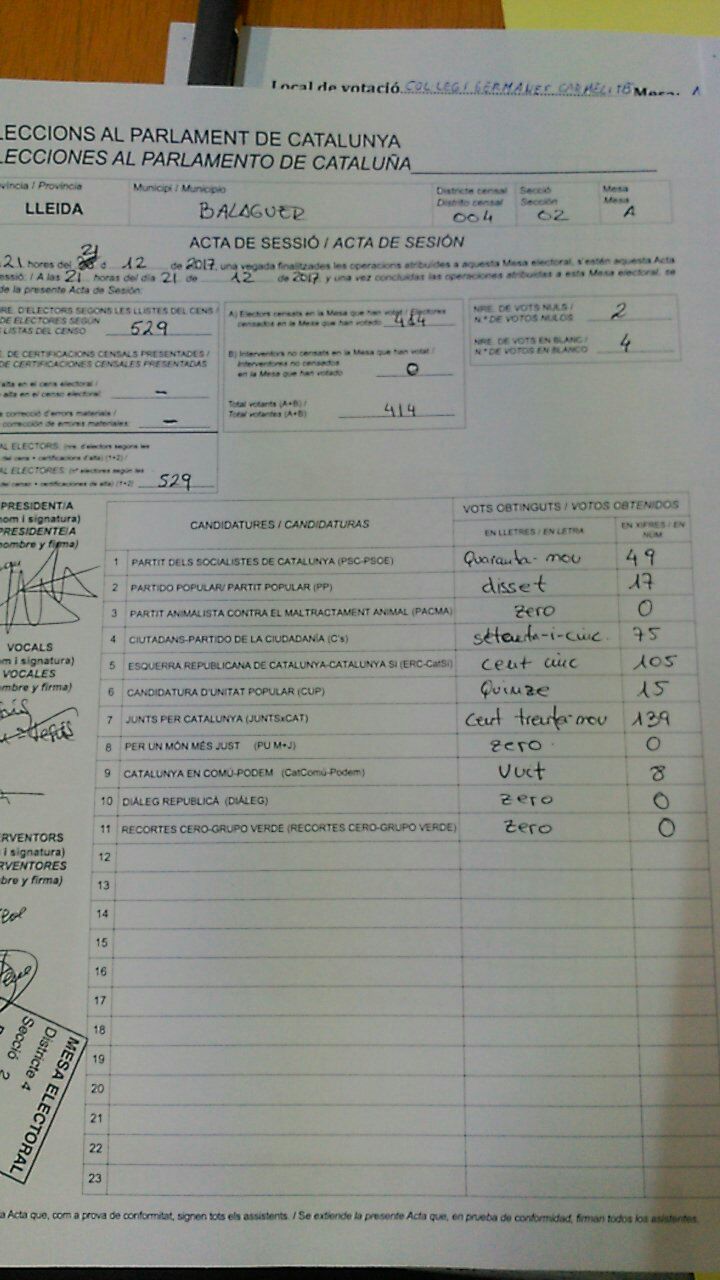 Local de votació COL·LEGI GERMANES CARMELITES Mesa: A
LECCIONS AL PARLAMENT DE CATALUNYA
LECCIONES AL PARLAMENTO DE CATALUÑA
víncia / Provincia
LLEIDA
Municipi / Municipio
BALAGUER
Districte censal
Distrito censal
004
Secció
Sección
02
Mesa
Mesa
A
ACTA DE SESSIÓ / ACTA DE SESIÓN
21 hores del 21 d 12 de 2017, una vegada finalitzades les operacions atribuïdes a aquesta Mesa electoral, s'estén aquesta Acta
essió: / A las 21 horas del día 21 de 12 de 2017 y una vez concluidas las operaciones atribuidas a esta Mesa electoral, se
de la presente Acta de Sesión:
RE. D'ELECTORS SEGONS LES LLISTES DEL CENS /
DE ELECTORES SEGÚN
LISTAS DEL CENSO
529
. DE CERTIFICACIONS CENSALS PRESENTADES /
DE CERTIFICACIONES CENSALES PRESENTADAS
alta en el cens electoral /
alta en el censo electoral: –
correcció d'errors materials /
corrección de errores materiales: –
AL ELECTORS: (nre. d'electors segons les
del cens + certificacions d'alta) (1+2) /
AL ELECTORES: (nº electores según las
del censo + certificaciones de alta) (1+2) 529
A) Electors censats en la Mesa que han votat / Electores
censados en la Mesa que han votado 414
B) Interventors no censats en la Mesa que han votat /
Interventores no censados
en la Mesa que han votado 0
Total votants (A+B) /
Total votantes (A+B) 414
NRE. DE VOTS NULS /
N.º DE VOTOS NULOS 2
NRE. DE VOTS EN BLANC /
N.º DE VOTOS EN BLANCO 4
PRESIDENT/A
nom i signatura)
PRESIDENTE/A
nombre y firma)
VOCALS
m i signatura)
VOCALES
mbre y firma)
ERVENTORS
i signatura)
RVENTORES
bre y firma)
CANDIDATURES / CANDIDATURAS
VOTS OBTINGUTS / VOTOS OBTENIDOS
EN LLETRES / EN LETRA
EN XIFRES / EN
NÚM
1 PARTIT DELS SOCIALISTES DE CATALUNYA (PSC-PSOE) Quaranta-nou 49
2 PARTIDO POPULAR/ PARTIT POPULAR (PP) disset 17
3 PARTIT ANIMALISTA CONTRA EL MALTRACTAMENT ANIMAL (PACMA) zero 0
4 CIUTADANS-PARTIDO DE LA CIUDADANÍA (C's) setanta-i-cinc. 75
5 ESQUERRA REPUBLICANA DE CATALUNYA-CATALUNYA SÍ (ERC-CatSí) cent cinc 105
6 CANDIDATURA D'UNITAT POPULAR (CUP) Quinze 15
7 JUNTS PER CATALUNYA (JUNTSxCAT) Cent trenta-nou 139
8 PER UN MÓN MÉS JUST (PU M+J) zero 0
9 CATALUNYA EN COMÚ-PODEM (CatComú-Podem) Vuit 8
10 DIÀLEG REPUBLICÀ (DIÀLEG) zero 0
11 RECORTES CERO-GRUPO VERDE (RECORTES CERO-GRUPO VERDE) zero 0
12
13
14
15
16
17
18
19
20
21
22
23
MESA ELECTORAL
Districte 4
Secció 2
a Acta que, com a prova de conformitat, signen tots els assistents. / Se extiende la presente Acta que, en prueba de conformidad, firman todos los asistentes.